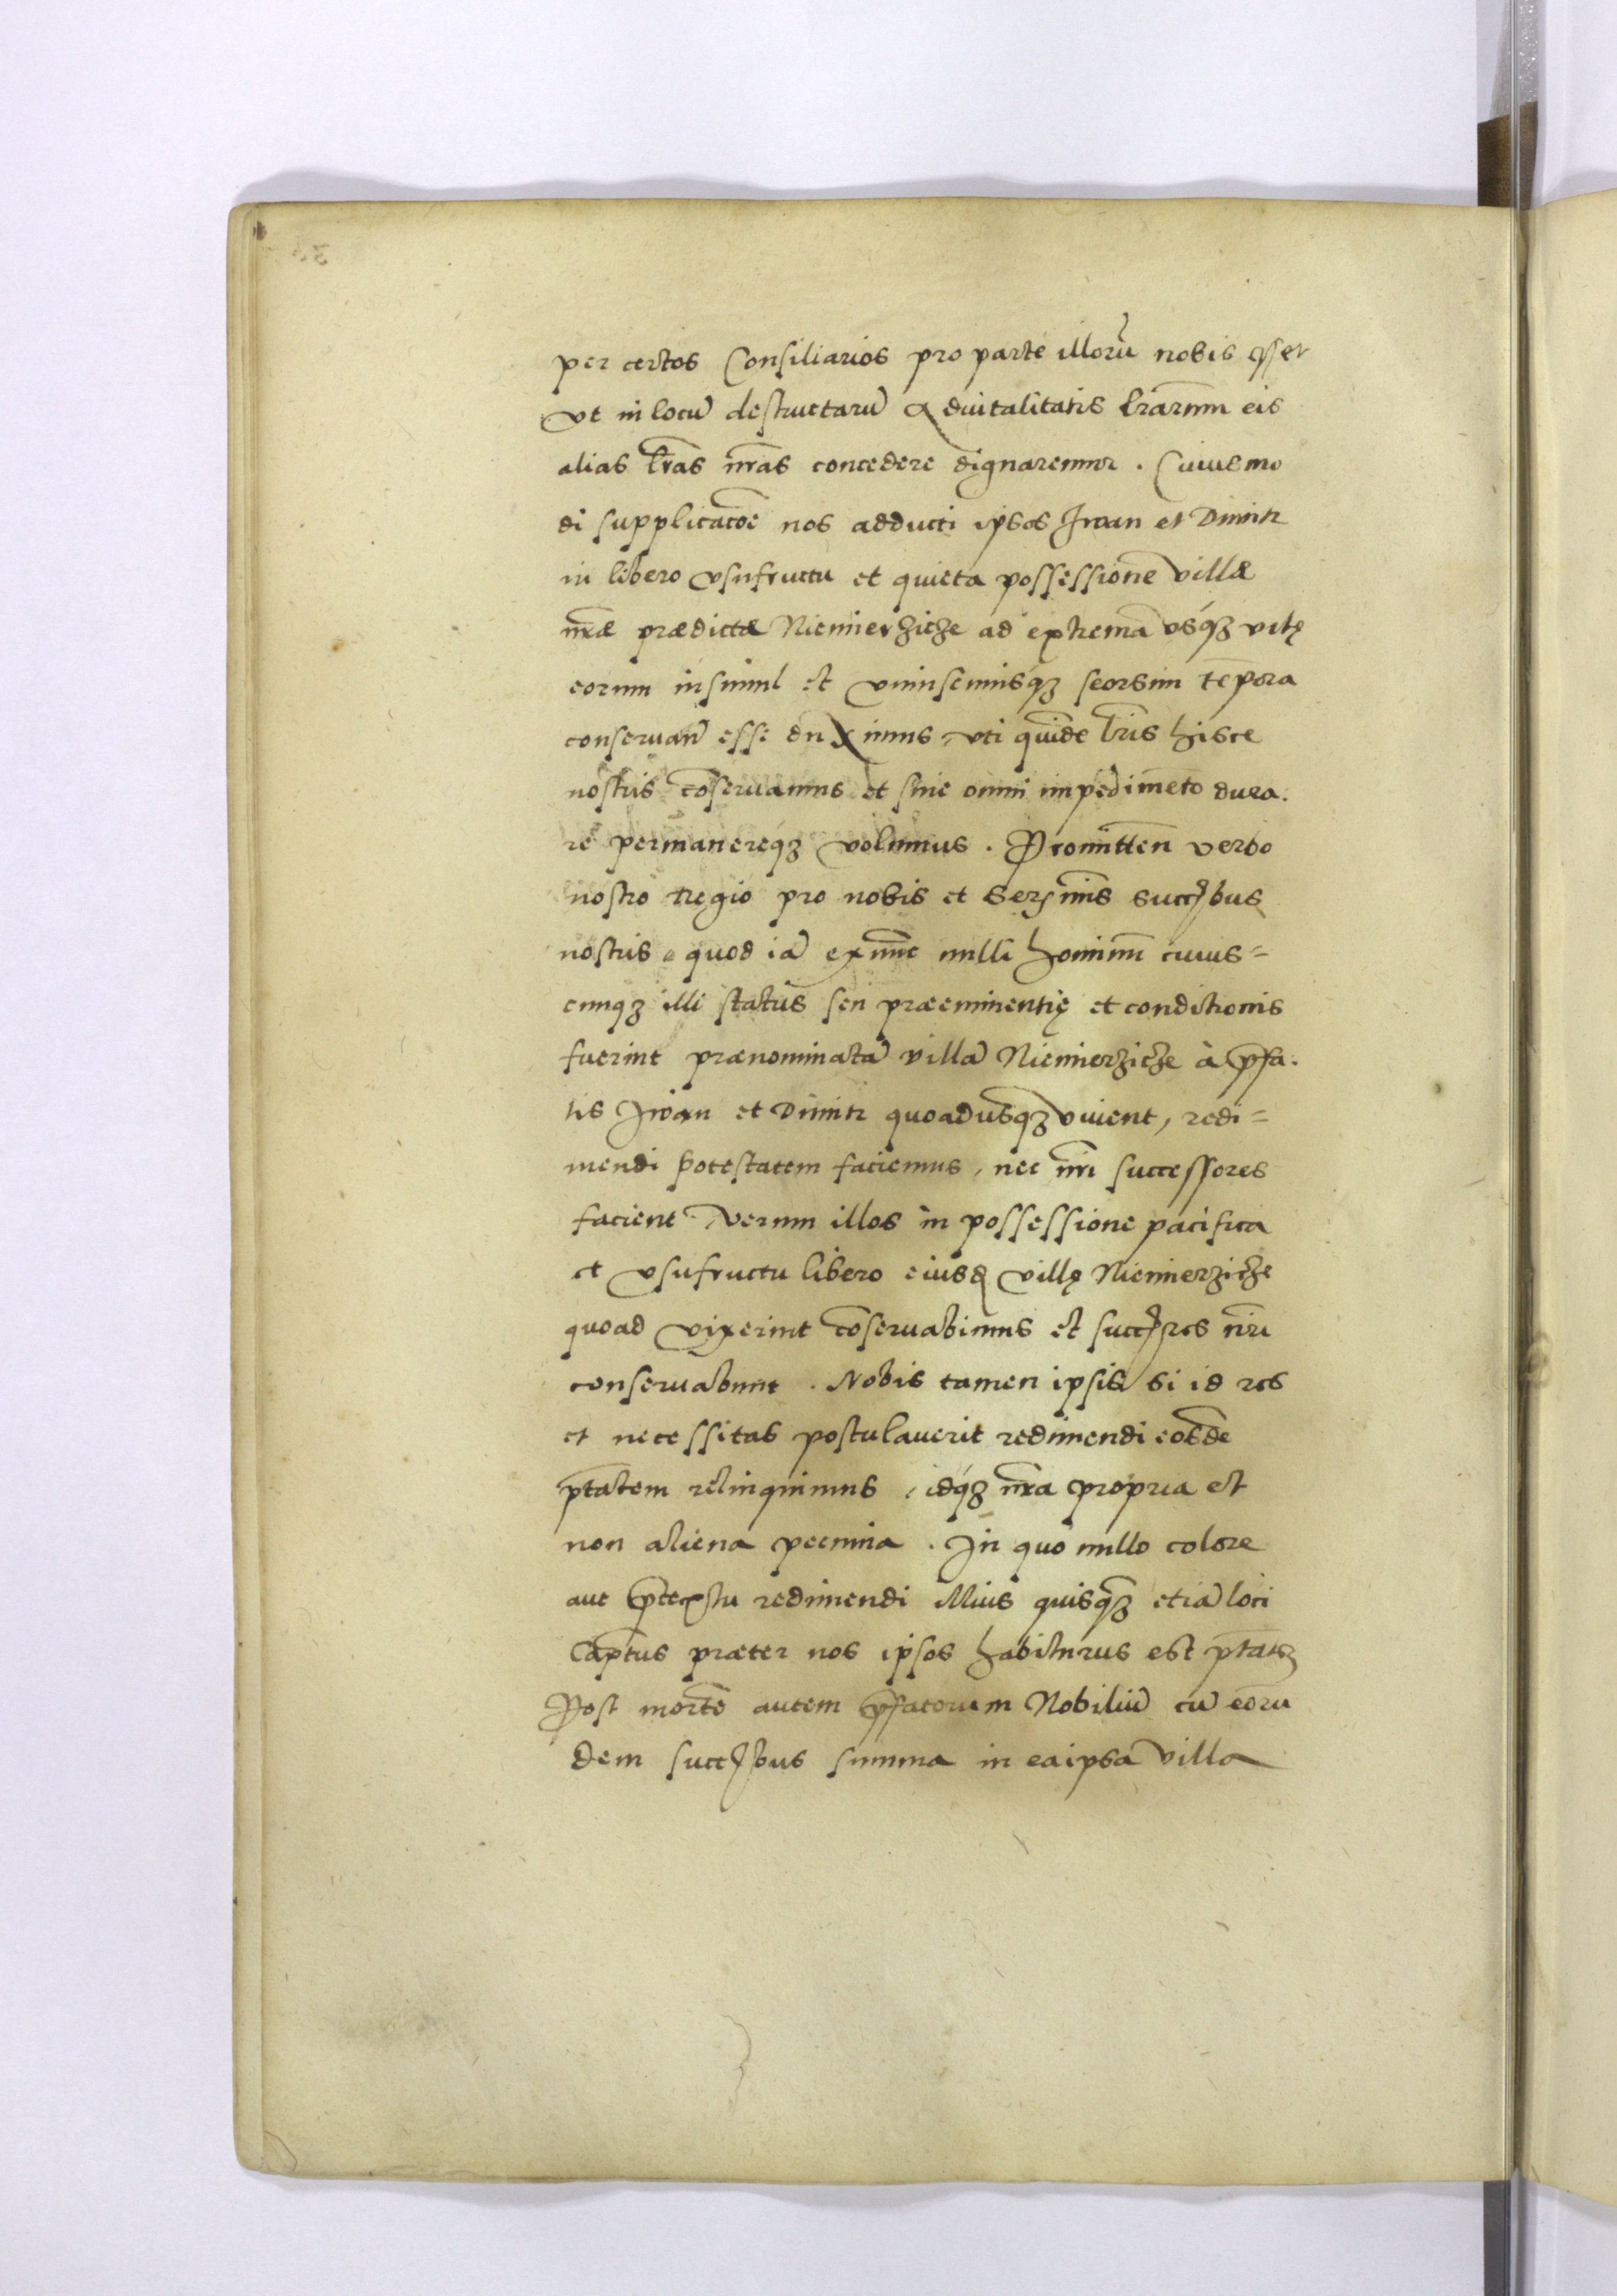 per certos Consiliarios pro parte illorū nobis esset
vt in locū destructarū aduitalitatis l̄rarum eis
alias l̄ras n̄ras concedere dignaremur . Cuiusmo
di supplicac̄oe nos adducti ipsos Iwan et Dimitr
in libero vsufructu et quieta possessione villæ
n̄ræ prædictæ Niemierzicze ad extremā vsq́ꝫ vitę
eorum insimul et vniuscuiusq́ꝫ seorsim tēpora
conseruan̄ esse duximus, vti quidē l̄ris hisce
nostris cōseruamus et sine omni impedimēto dura.
re permanereq́ꝫ volumus . Promitten̄ verbo
nostro regio pro nobis et Serᷤmis succꝭbus
nostris quod iā exnūc nulli hominū cuius=
cunqꝫ illi status seu præeminentię et conditionis
fuerint prænominatā villā Niemierzicze à p̄fa.
tis Iwan et Dimitr quoadusqꝫ viuent, redi=
mendi potestatem faciemus, nec n̄ri successores
facient. Verum illos in possessione pacifica
et vsufructu libero eiusd villę Niemierzicze
quoad vixerint cōseruabimus et succꝭres n̄ri
conseruabunt . Nobis tamen ipsis si id res
et necessitas postulauerit redimendi eosdē
p̄tatem relinquimus, idq́ꝫ n̄ra propria et
non aliena pecunia . In quo nullo colore
aut p̄textu redimendi Alius quisqꝫ etiā loci
Cap̄tus præter nos ipsos habiturus est p̄tatꝫ
Post mortē autem p̄fatorum Nobiliū cū eorū
dem succꝭbus summa in ea ipsa villa